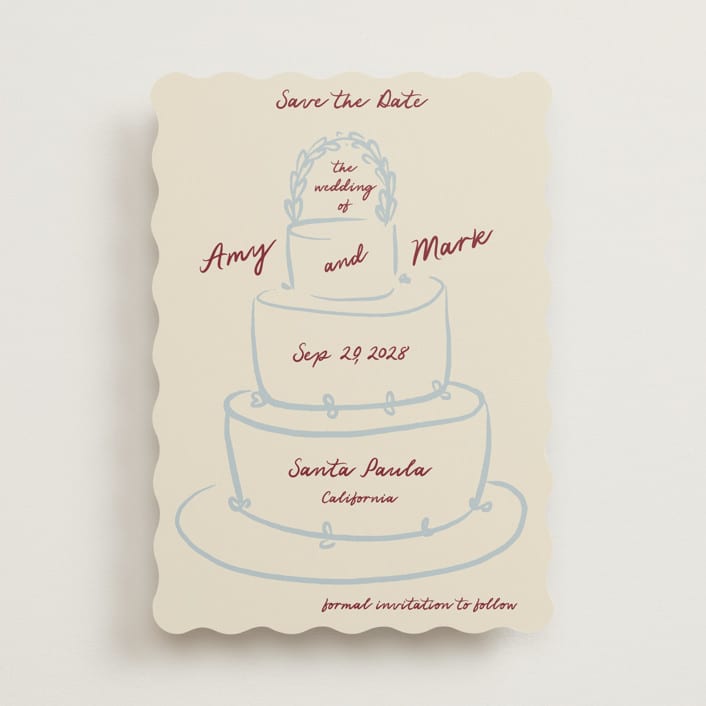 Save the Date
the
wedding
of
Amy and Mark
Sep 29, 2028
Santa Paula
California
formal invitation to follow